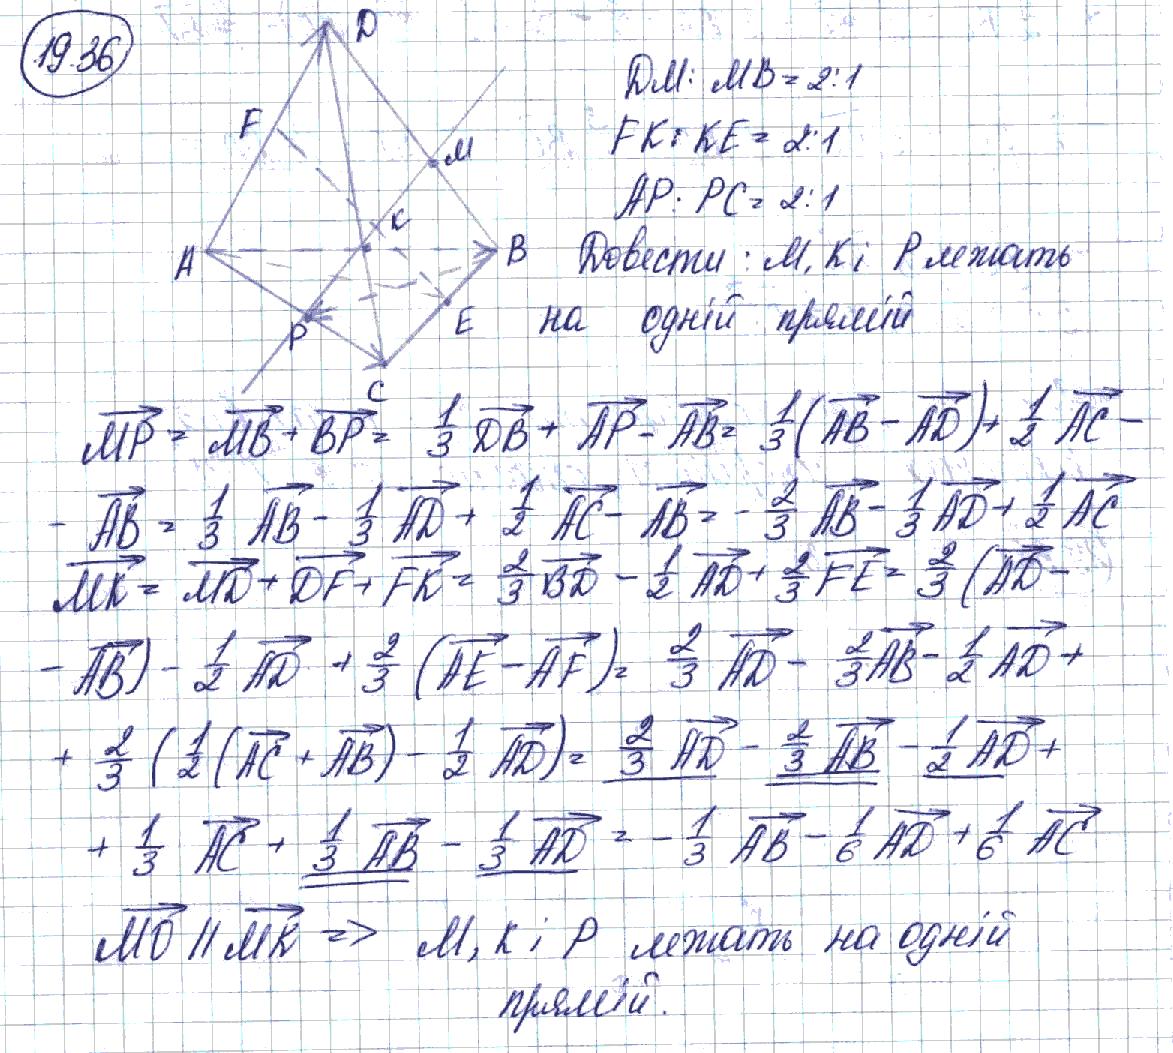 19.36
D
F
M
K
A
B
P
E
C
DM : MB = 2:1
FK : KE = 2:1
AP : PC = 2:1
Довести : M, K і P лежать
на одній прямій
$\overrightarrow{MP} = \overrightarrow{MB} + \overrightarrow{BP} = \frac{1}{3}\overrightarrow{DB} + \overrightarrow{AP} - \overrightarrow{AB} = \frac{1}{3}(\overrightarrow{AB} - \overrightarrow{AD}) + \frac{1}{2}\overrightarrow{AC} -$
$- \overrightarrow{AB} = \frac{1}{3}\overrightarrow{AB} - \frac{1}{3}\overrightarrow{AD} + \frac{1}{2}\overrightarrow{AC} - \overrightarrow{AB} = -\frac{2}{3}\overrightarrow{AB} - \frac{1}{3}\overrightarrow{AD} + \frac{1}{2}\overrightarrow{AC}$
$\overrightarrow{MK} = \overrightarrow{MD} + \overrightarrow{DF} + \overrightarrow{FK} = \frac{2}{3}\overrightarrow{BD} - \frac{1}{2}\overrightarrow{AD} + \frac{2}{3}\overrightarrow{FE} = \frac{2}{3}(\overrightarrow{AD} -$
$- \overrightarrow{AB}) - \frac{1}{2}\overrightarrow{AD} + \frac{2}{3}(\overrightarrow{AE} - \overrightarrow{AF}) = \frac{2}{3}\overrightarrow{AD} - \frac{2}{3}\overrightarrow{AB} - \frac{1}{2}\overrightarrow{AD} +$
$+ \frac{2}{3}(\frac{1}{2}(\overrightarrow{AC} + \overrightarrow{AB}) - \frac{1}{2}\overrightarrow{AD}) = \frac{2}{3}\overrightarrow{AD} - \frac{2}{3}\overrightarrow{AB} - \frac{1}{2}\overrightarrow{AD} +$
$+ \frac{1}{3}\overrightarrow{AC} + \frac{1}{3}\overrightarrow{AB} - \frac{1}{3}\overrightarrow{AD} = -\frac{1}{3}\overrightarrow{AB} - \frac{1}{6}\overrightarrow{AD} + \frac{1}{6}\overrightarrow{AC}$
$\overrightarrow{MO} \parallel \overrightarrow{MK}$ => M, K і P лежать на одній
прямій.